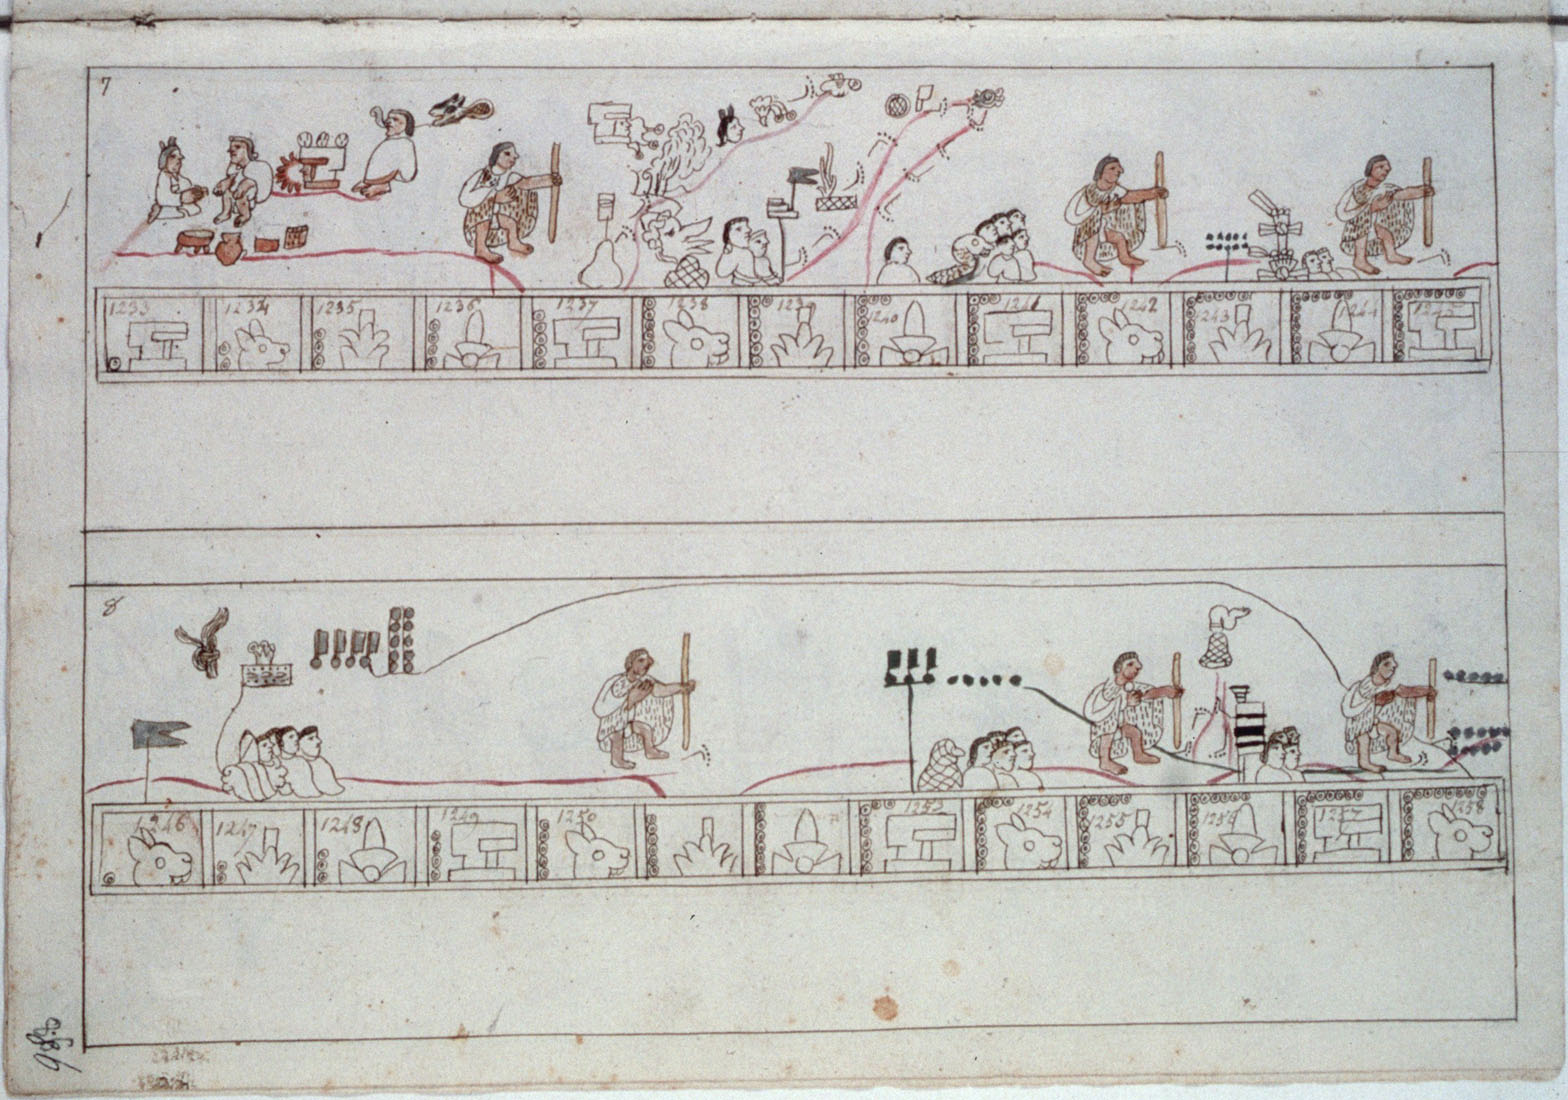 7
1233 1234 1235 1236 1237 1238 1239 1240 1241 1242 1243 1244 1245
8
1246 1247 1248 1249 1250 1253 1254 1255 1256 1257 1258